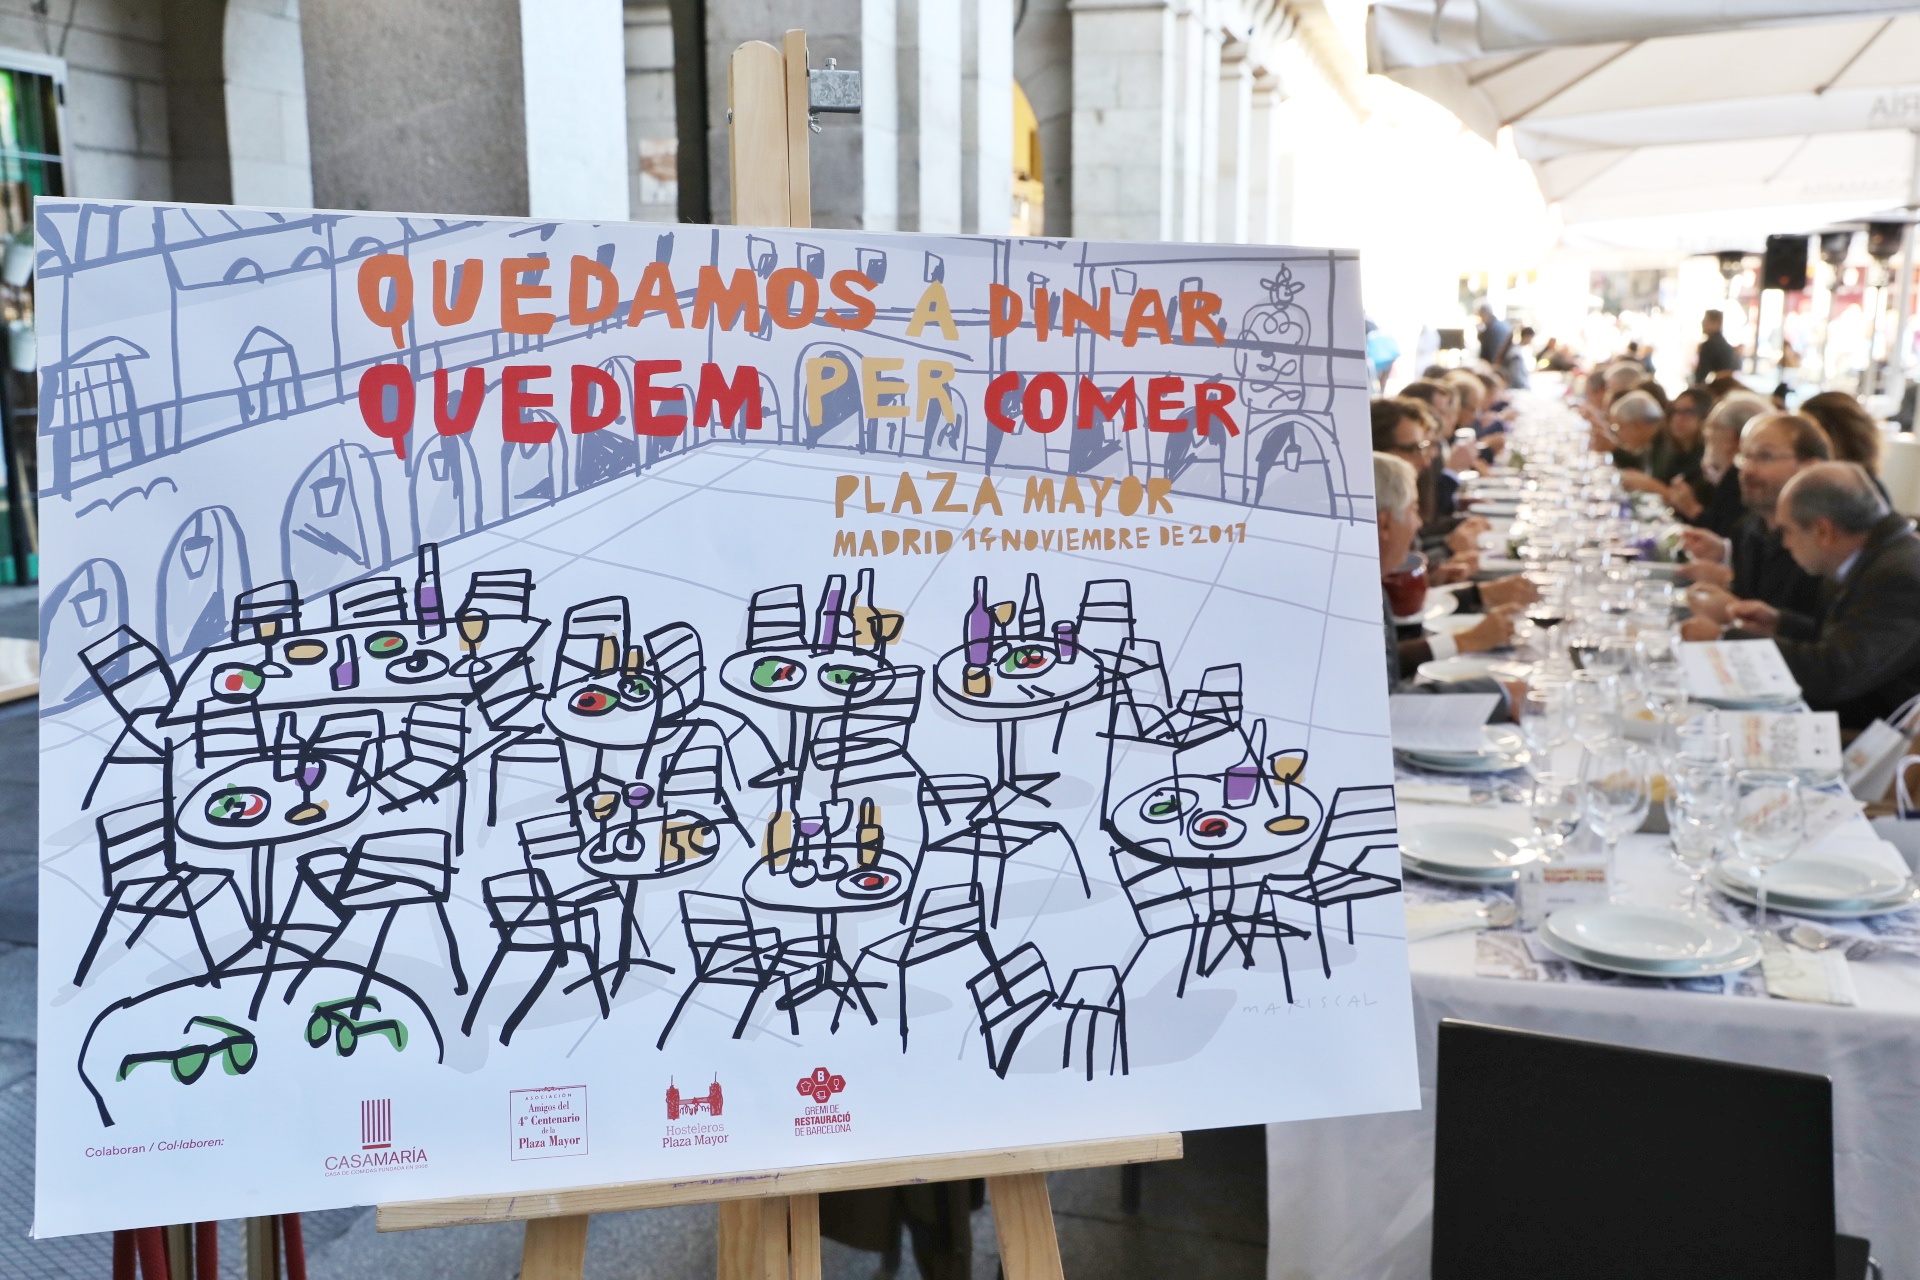 QUEDAMOS A DINAR
QUEDEM PER COMER
PLAZA MAYOR
MADRID 14 NOVIEMBRE DE 2017
MARISCAL
Colaboran / Col·laboren:
CASAMARÍA
CASA DE COMIDAS FUNDADA EN 2000
ASOCIACIÓN
Amigos del
4º Centenario
de la
Plaza Mayor
Hosteleros
Plaza Mayor
B
GREMI DE
RESTAURACIÓ
DE BARCELONA